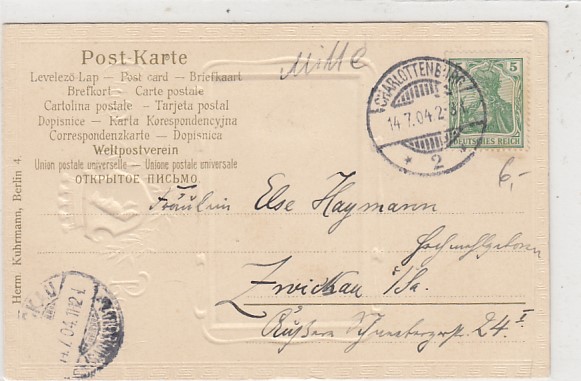 Post-Karte
Levelező-Lap — Post card — Briefkaart
Brefkort — Carte postale
Cartolina postale — Tarjeta postal
Dopisnice — Karta Korespondencyjna
Correspondenzkarte — Dopisnica
Weltpostverein
Union postale universelle — Unione postale universale
ОТКРЫТОЕ ПИСЬМО.
Herm. Kuhrmann, Berlin 4.
CHARLOTTENBURG
14.7.04.2-3
* 2 *
5
DEUTSCHES REICH
6,-
Fräulein Else Haymann
Hochwohlgeboren
Zwickau i/Sa.
Äußere 24 I
14.7.04.11-12